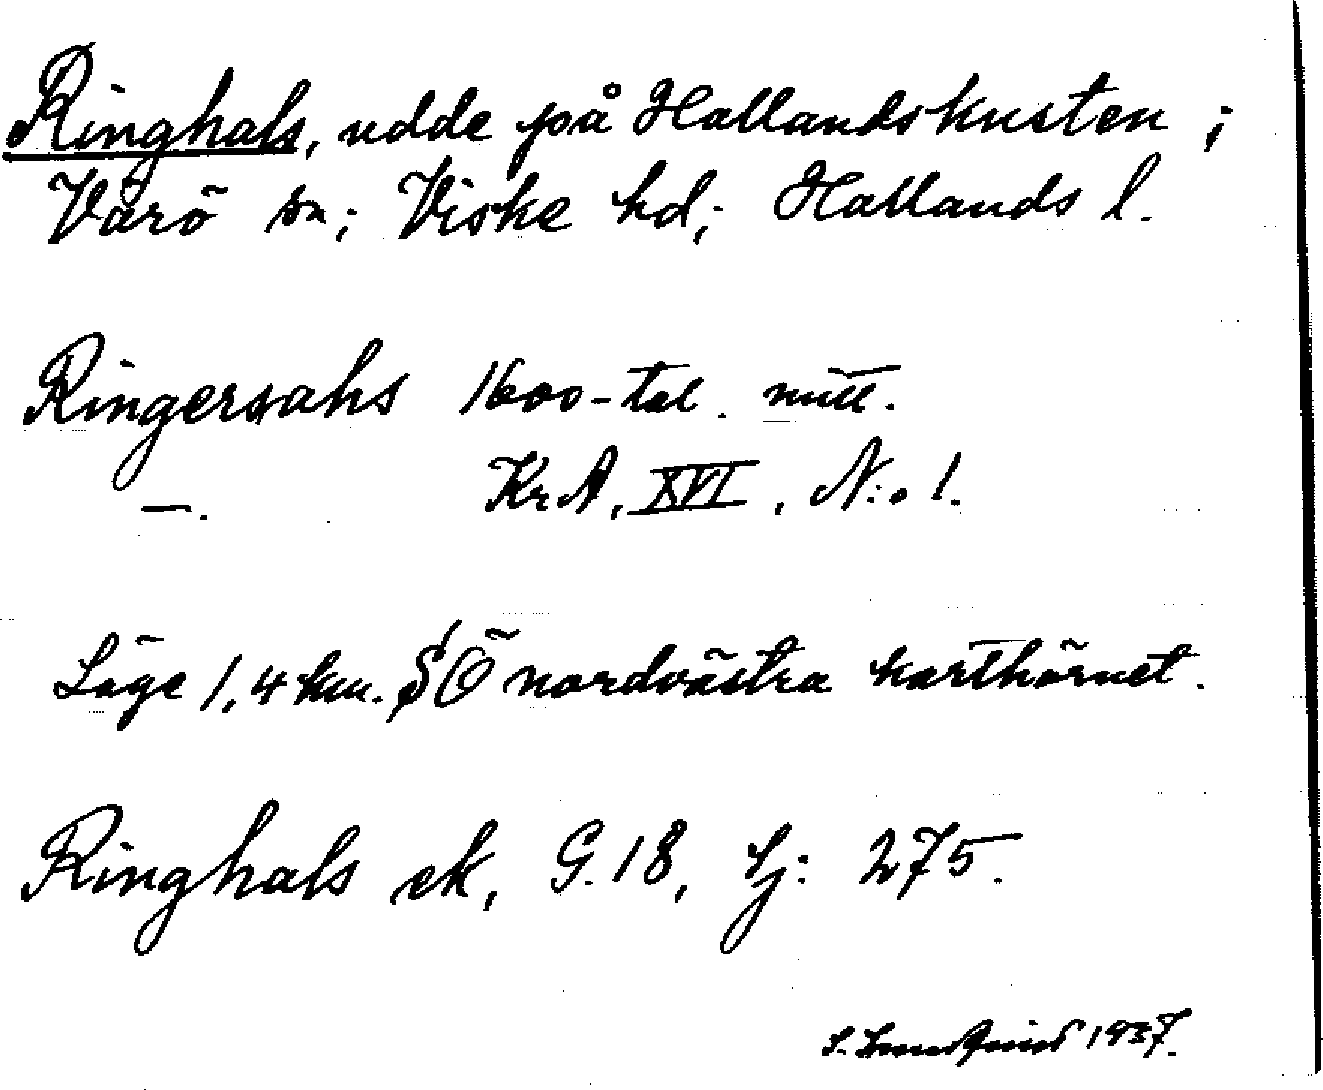 Ringhals, udde på Hallandskusten;
Värö sn; Viske hd; Hallands l.
Ringersahs 1600-tal. mitt.
—. KrA, XVI, N:o 1.
Läge 1,4 km. S/Ö nordvästra karthörnet.
Ringhals ek, G. 18, Lj: 275.
S. 1937.